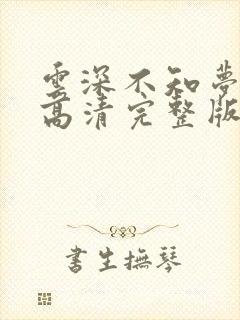 雲深不知夢
高清完整版
書生撫琴